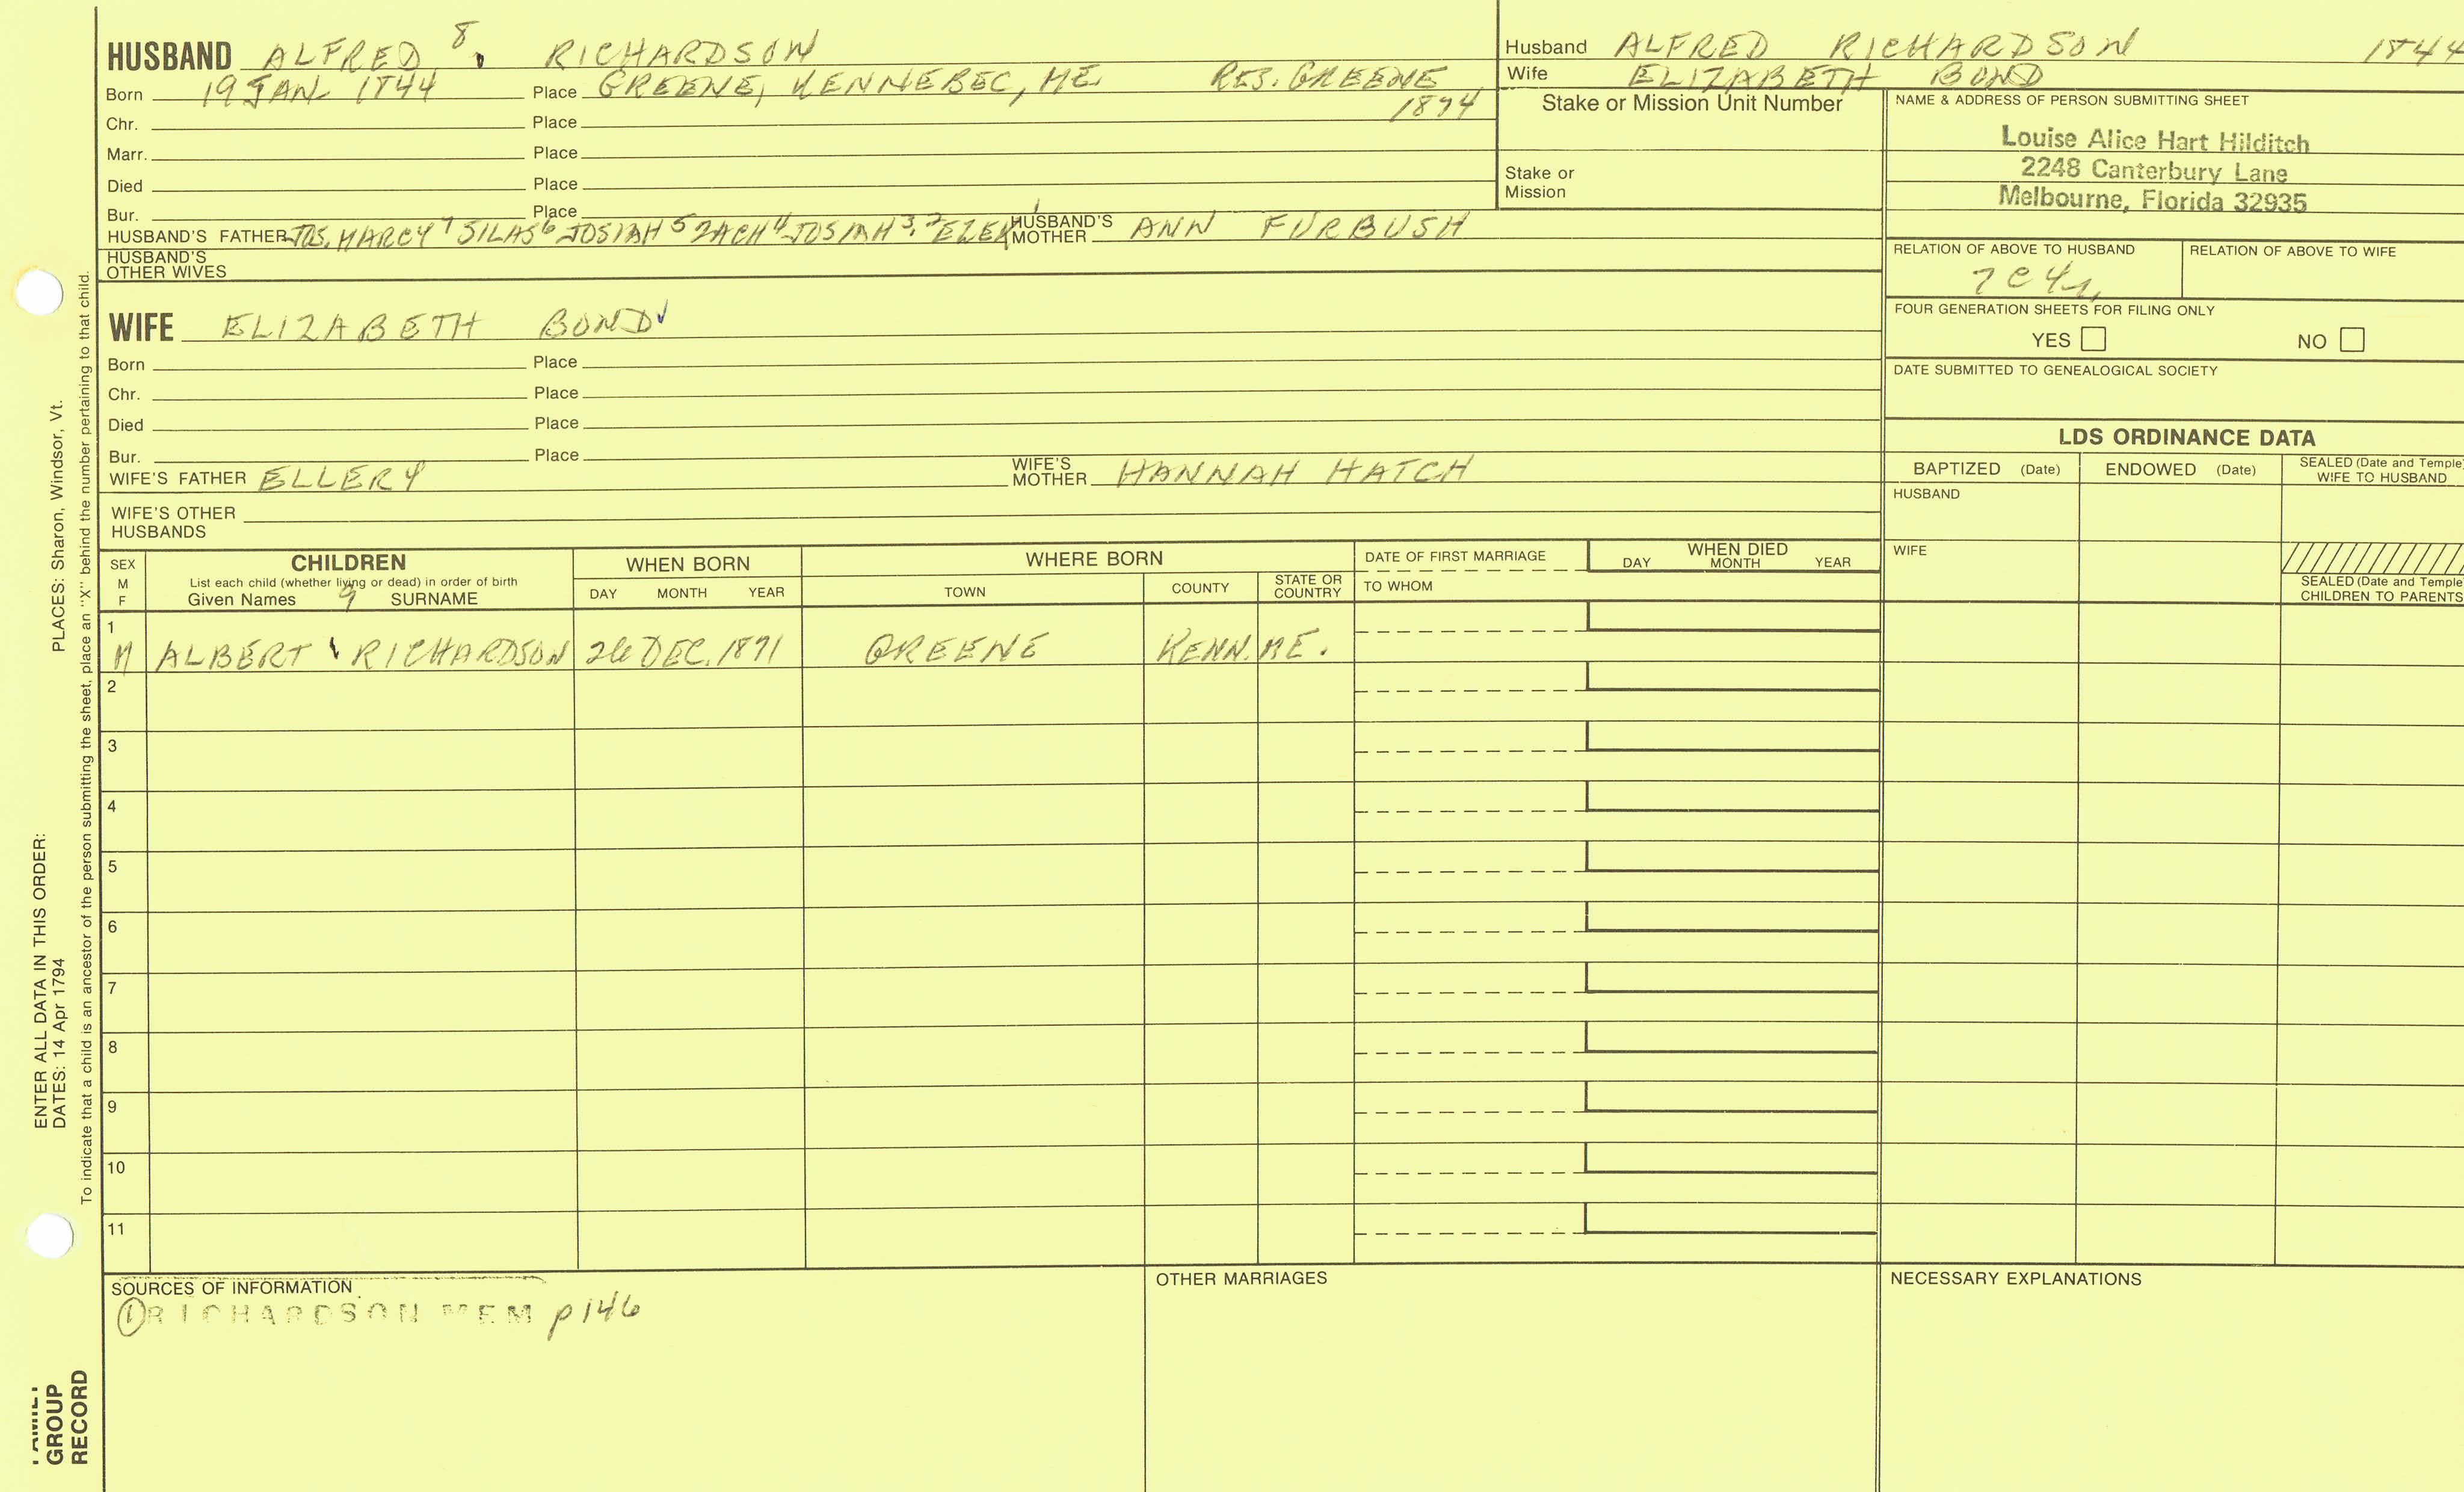 HUSBAND ALFRED 8 RICHARDSON
Born 19 JAN 1844 Place GREENE, KENNEBEC, ME RES. GREENE
1874
Chr. Place
Marr. Place
Died Place
Bur. Place
HUSBAND'S FATHER JOS. MARCY 7 SILAS 6 JOSIAH 5 ZACH 4 JOSIAH 3, 2 EZEK 1 HUSBAND'S MOTHER ANN FURBUSH
HUSBAND'S OTHER WIVES
Husband ALFRED RICHARDSON 1844
Wife ELIZABETH BOND
Stake or Mission Unit Number
Stake or
Mission
NAME & ADDRESS OF PERSON SUBMITTING SHEET
Louise Alice Hart Hilditch
2248 Canterbury Lane
Melbourne, Florida 32935
RELATION OF ABOVE TO HUSBAND RELATION OF ABOVE TO WIFE
7C4r
FOUR GENERATION SHEETS FOR FILING ONLY
YES NO
DATE SUBMITTED TO GENEALOGICAL SOCIETY
WIFE ELIZABETH BOND
Born Place
Chr. Place
Died Place
Bur. Place
WIFE'S FATHER ELLERY WIFE'S MOTHER HANNAH HATCH
WIFE'S OTHER
HUSBANDS
LDS ORDINANCE DATA
BAPTIZED (Date) ENDOWED (Date) SEALED (Date and Temple) WIFE TO HUSBAND
HUSBAND
WIFE
SEALED (Date and Temple
CHILDREN TO PARENTS
SEX M F
CHILDREN
List each child (whether living or dead) in order of birth
Given Names 9 SURNAME
WHEN BORN
DAY MONTH YEAR
WHERE BORN
TOWN COUNTY STATE OR COUNTRY
DATE OF FIRST MARRIAGE
TO WHOM
WHEN DIED
DAY MONTH YEAR
1
M ALBERT RICHARDSON 26 DEC. 1871 GREENE KENN. ME.
2
3
4
5
6
7
8
9
10
11
SOURCES OF INFORMATION
① RICHARDSON MEM p146
OTHER MARRIAGES
NECESSARY EXPLANATIONS
ENTER ALL DATA IN THIS ORDER:
DATES: 14 Apr 1794 PLACES: Sharon, Windsor, Vt.
To indicate that a child is an ancestor of the person submitting the sheet, place an "X" behind the number pertaining to that child.
FAMILY
GROUP
RECORD